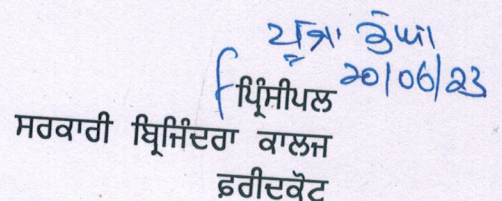 ਪੂਜਾ ਭੱਘਾ
20/06/23
ਪ੍ਰਿੰਸੀਪਲ
ਸਰਕਾਰੀ ਬ੍ਰਿਜਿੰਦਰਾ ਕਾਲਜ
ਫ਼ਰੀਦਕੋਟ